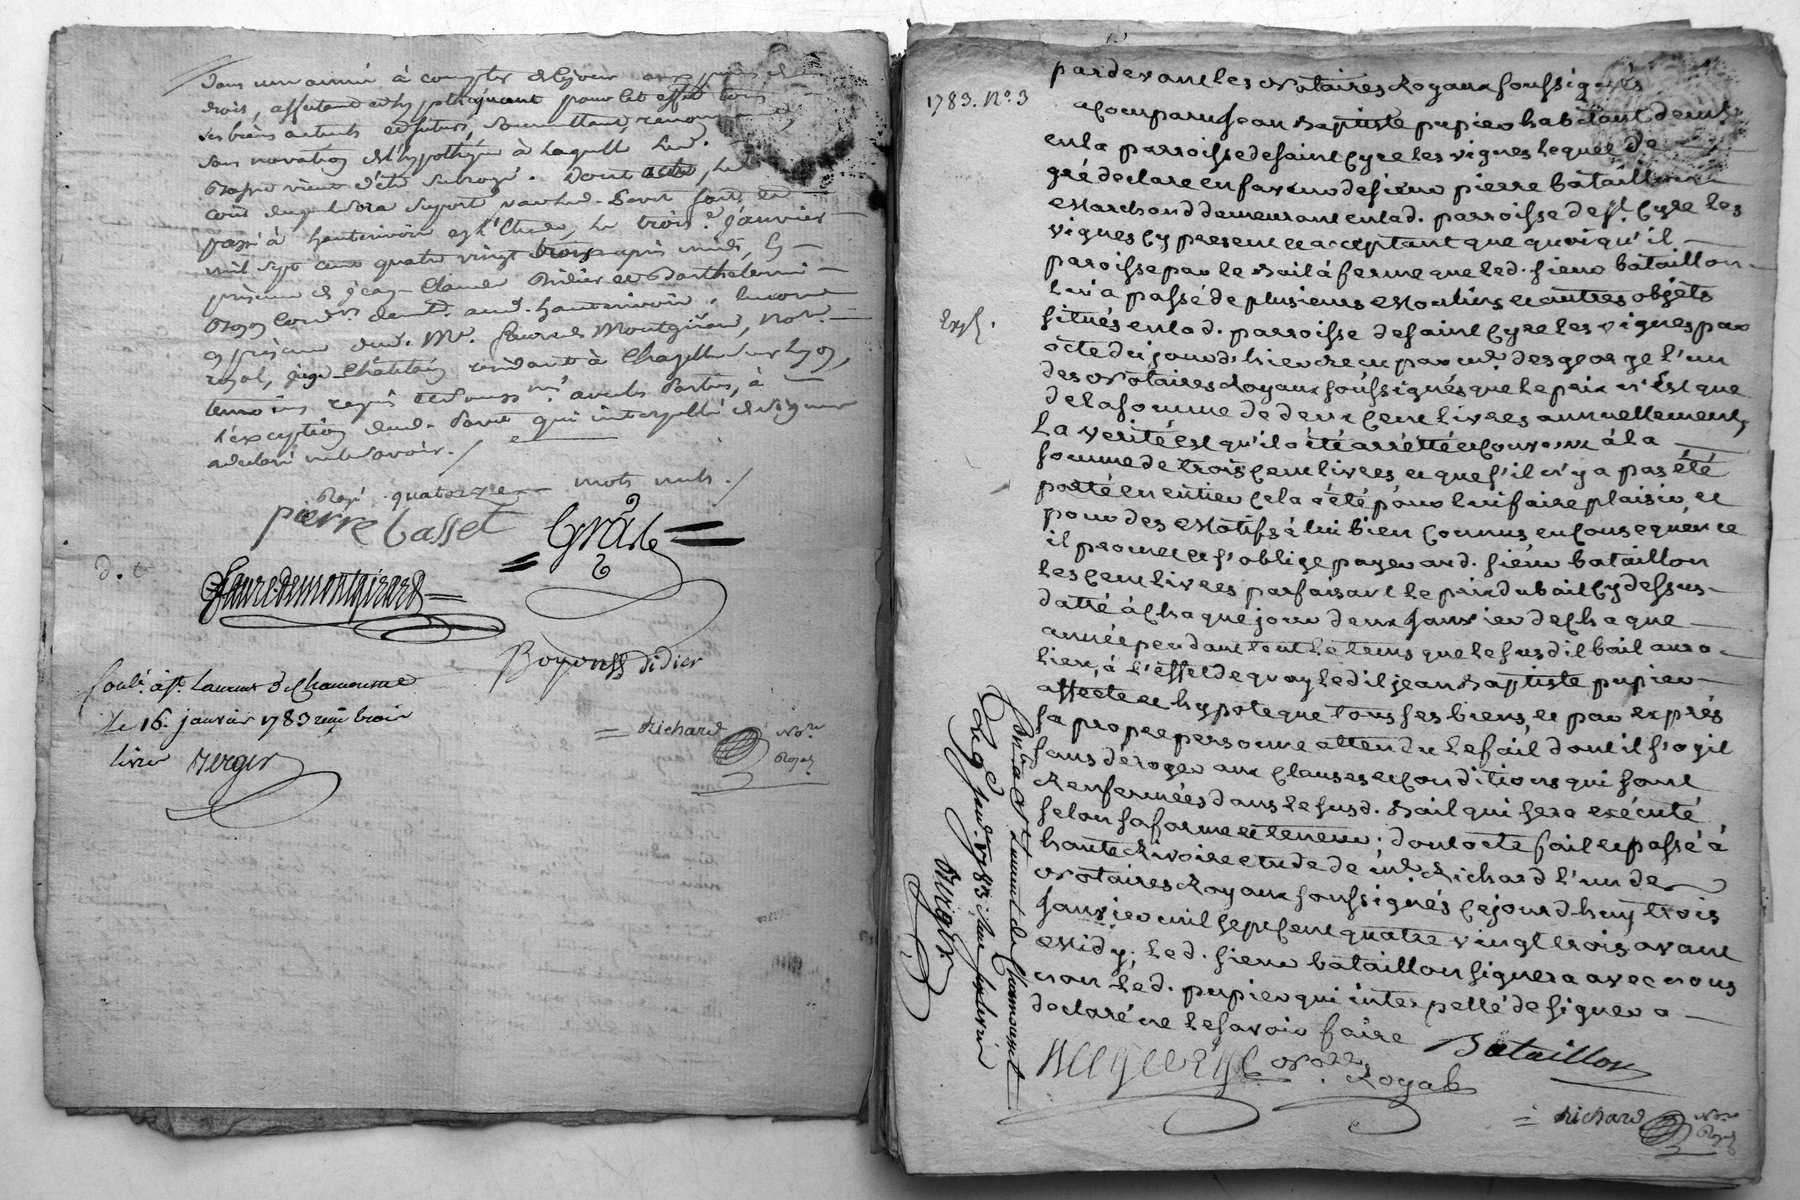 dans un année à compter de ce jour
droits, affectant et hypothéquant pour cet effet tous
ses biens actuels et futurs, soumettant, renonçant
sans novation de l'hypothèque à laquelle led.
Basset vient d'être subrogé. Dont acte, le
passé à hauterivoire en l'Etude, le trois.e Janvier
mil sept cent quatre vingt trois après midi, En
présence de Jean Claude Didier et Barthelemi
demt. aud. hauterivoire,
en présence dud. Me. faure de Montgirard, Not.re
royal, juge Chatelain résidant à Chazelle sur Lyon,
témoins requis et soussnés. avec les Parties, à
l'exception dud. qui interpellé de signer
a déclaré ne le savoir./
Rayé quatorze mots nuls./
pierre basset
faure de montgirard
Boyon
didier
Conlé. à st. Laurent de Chamousset
Le 16. janvier 1783 reçu trois
livres Berger
= Richard Nore. Royal
1783. No. 3
Exp.
pardevant les Notaires Royaux soussignés
a Comparu Jean Baptiste pupier habitant demt.
en la parroisse de saint Cyre les vignes lequel de
gré declare en faveur de sieur pierre bataillon
Marchand demeurant en lad. parroisse de st. Cyre les
vignes Cy present et acceptant que quoiqu'il
paroisse par le Bail à ferme que led. sieur bataillon
lui a passé de plusieurs Moulins et autres objets
situés en lad. parroisse de saint Cyre les vignes par
acte du jour d'hier recu par me. desgeorge l'un
des Notaires Royaux soussignés que le prix n'Est que
de la somme de deux Cent livres annuellement,
La verité est qu'il a été arrétté et Convenu à la
somme de trois Cent livres et que s'il n'y a pas été
porté en entier Cela a été pour lui faire plaisir et
pour des Motifs à lui bien Connus en Consequence
il promet et s'oblige payer aud. sieur bataillon
les Cent livres parfaisant le prix du bail Cy dessus
datté à Chaque jour deux Janvier de Chaque
année pendant tout le tems que le susdit bail aura
lieu, à l'effet de quoy ledit jean Baptiste pupier
affecte et hypoteque tous ses biens, et par exprés
sa propre personne attendu le fait dont il s'agit
sans déroger aux Clauses et Conditions qui sont
Renfermées dans le susd. Bail qui sera exécuté
selon sa forme et teneur; dont acte fait et passé à
haute Rivoire etude de me. Richard l'un des
Notaires Royaux soussignés Cejourd'huy trois
Janvier mil sept Cent quatre vingt trois avant
Midy; led. sieur bataillon signera avec nous
non led. pupier qui interpellé de signer a
declaré ne le savoir faire
Bataillon
Desgeorge Notre. Royal
= Richard Nore. Royal
Con.lé à St Laurent de Chamousset
Le 16 janv. 1783
Berger